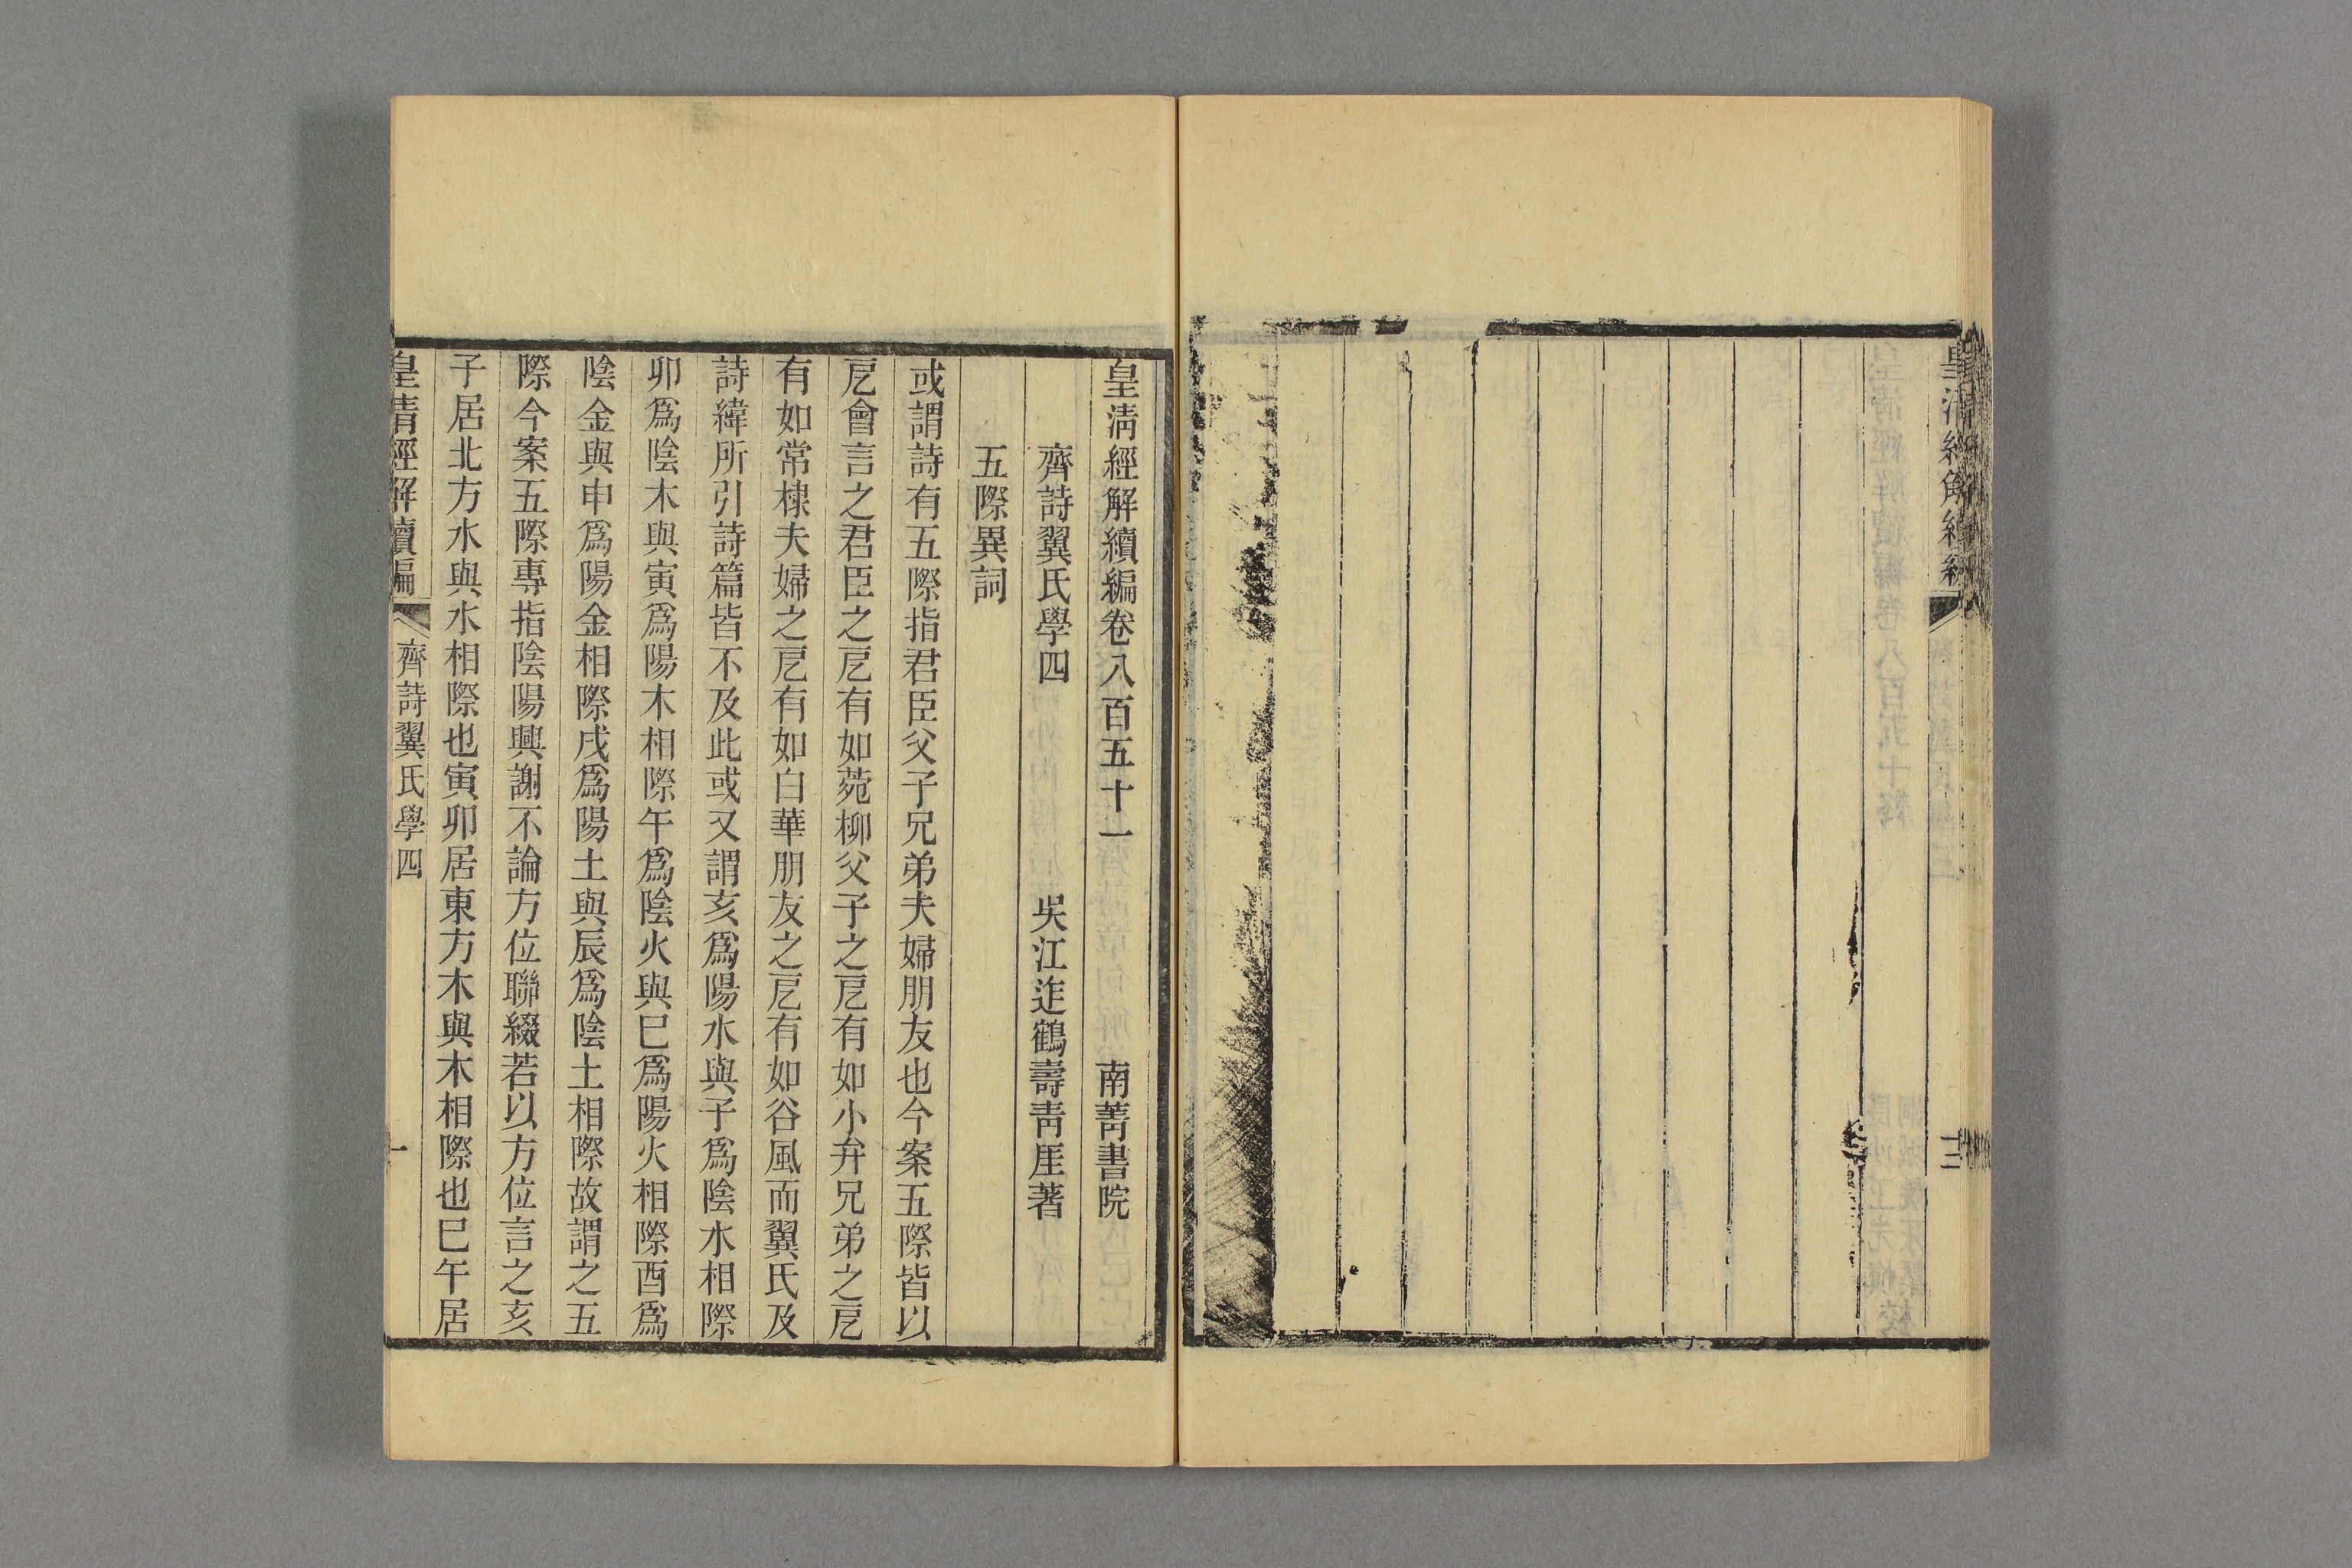 十三
皇淸經解續編卷八百五十一　南菁書院
齊詩翼氏學四　吳江迮鶴壽靑厓著
五際異詞
或謂詩有五際指君臣父子兄弟夫婦朋友也今案五際皆以
戹會言之君臣之戹有如菀柳父子之戹有如小弁兄弟之戹
有如常棣夫婦之戹有如白華朋友之戹有如谷風而翼氏及
詩緯所引詩篇皆不及此或又謂亥爲陽水與子爲陰水相際
卯爲陰木與寅爲陽木相際午爲陰火與巳爲陽火相際酉爲
陰金與申爲陽金相際戌爲陽土與辰爲陰土相際故謂之五
際今案五際專指陰陽興謝不論方位聯綴若以方位言之亥
子居北方水與水相際也寅卯居東方木與木相際也巳午居
皇淸經解續編　齊詩翼氏學四　一